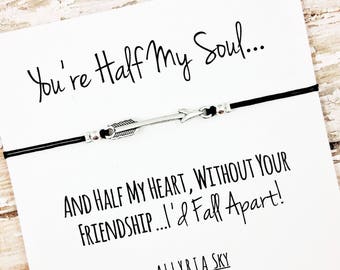 You're Half My Soul...
And Half My Heart, Without Your
Friendship ...I'd Fall Apart!
Allyria Sky